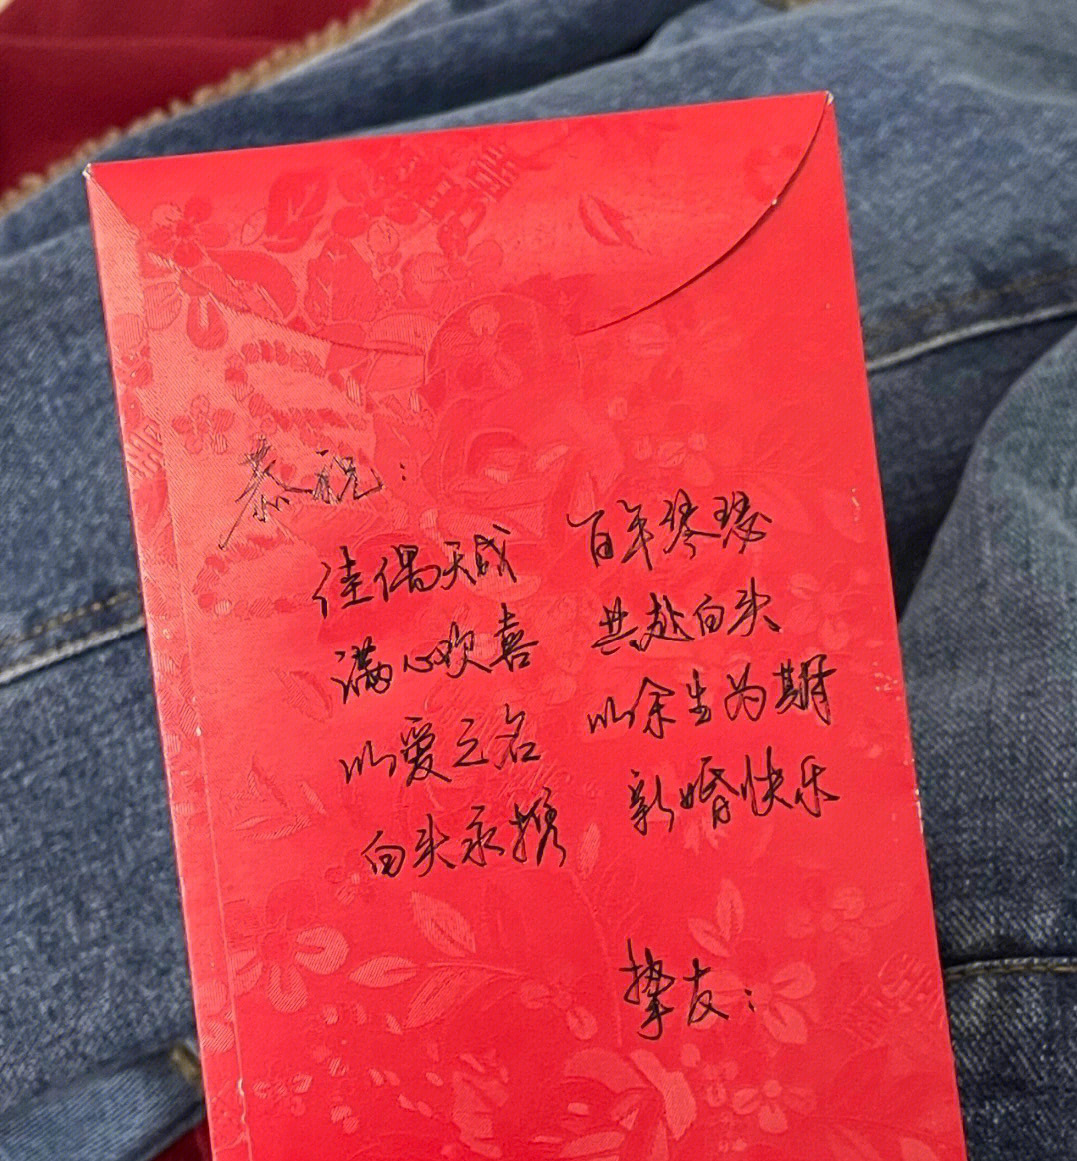 恭祝：
佳偶天成 百年琴瑟
满心欢喜 共赴白头
以爱之名 以余生为期
白头永携 新婚快乐
挚友：